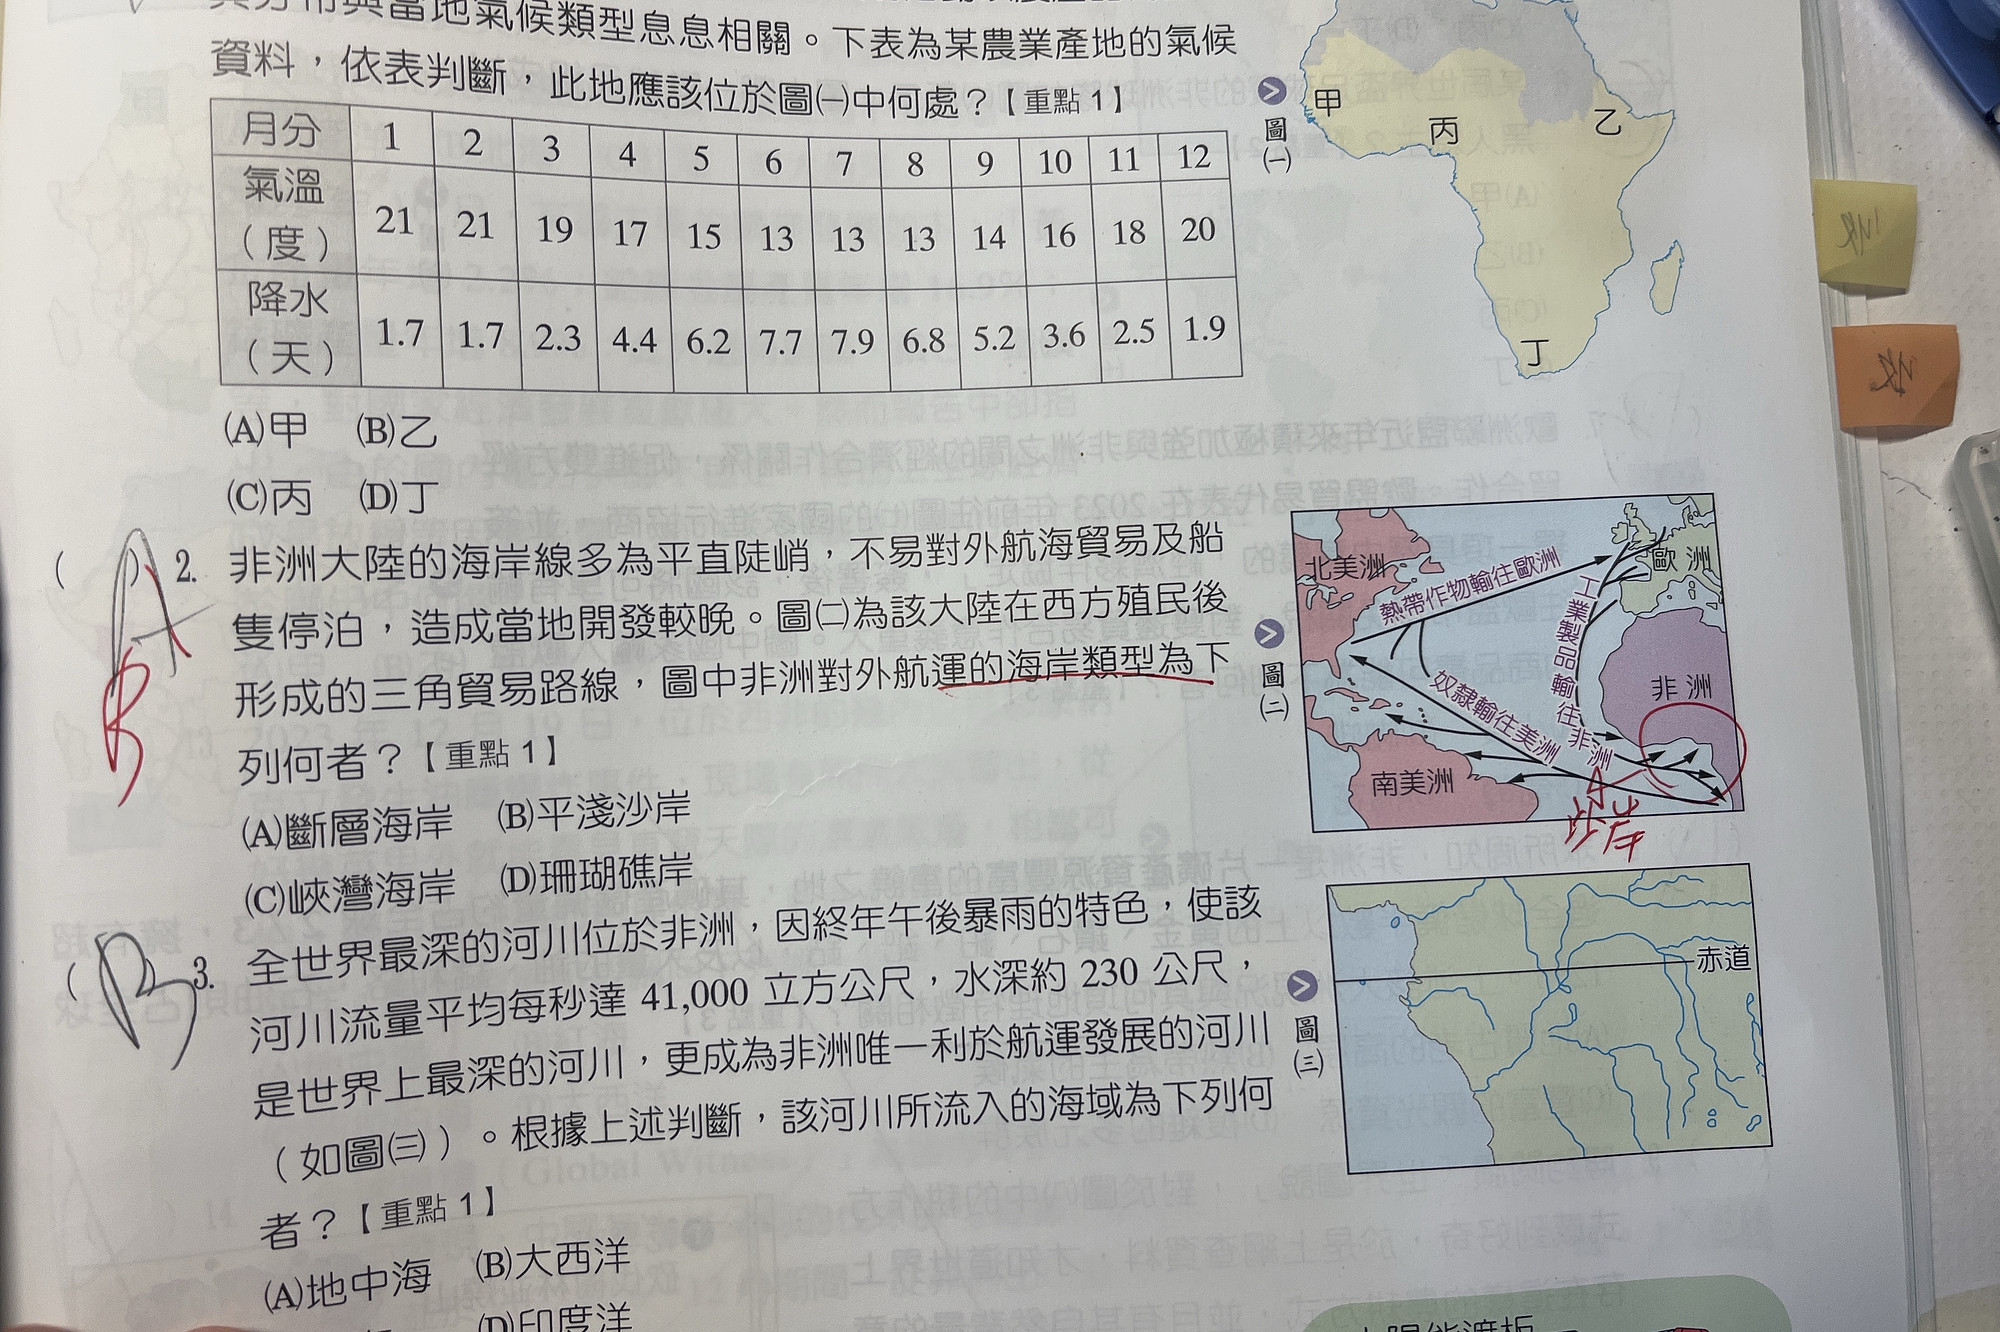 其分布與當地氣候類型息息相關。下表為某農業產地的氣候
資料，依表判斷，此地應該位於圖㈠中何處？【重點 1】
月分 1 2 3 4 5 6 7 8 9 10 11 12
氣溫（度） 21 21 19 17 15 13 13 13 14 16 18 20
降水（天） 1.7 1.7 2.3 4.4 6.2 7.7 7.9 6.8 5.2 3.6 2.5 1.9
(A)甲 (B)乙
(C)丙 (D)丁
圖㈠
甲
丙
乙
丁
( A ) 2. 非洲大陸的海岸線多為平直陡峭，不易對外航海貿易及船
B
隻停泊，造成當地開發較晚。圖㈡為該大陸在西方殖民後
形成的三角貿易路線，圖中非洲對外航運的海岸類型為下
列何者？【重點 1】
(A)斷層海岸 (B)平淺沙岸
(C)峽灣海岸 (D)珊瑚礁岸
圖㈡
北美洲
歐洲
熱帶作物輸往歐洲
工業製品輸往非洲
奴隸輸往美洲
非洲
南美洲
沙岸
( B ) 3. 全世界最深的河川位於非洲，因終年午後暴雨的特色，使該
河川流量平均每秒達 41,000 立方公尺，水深約 230 公尺，
是世界上最深的河川，更成為非洲唯一利於航運發展的河川
（如圖㈢）。根據上述判斷，該河川所流入的海域為下列何
者？【重點 1】
(A)地中海 (B)大西洋
(D)印度洋
圖㈢
赤道